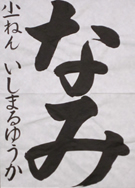 なみ
小一ねん いしまるゆうか